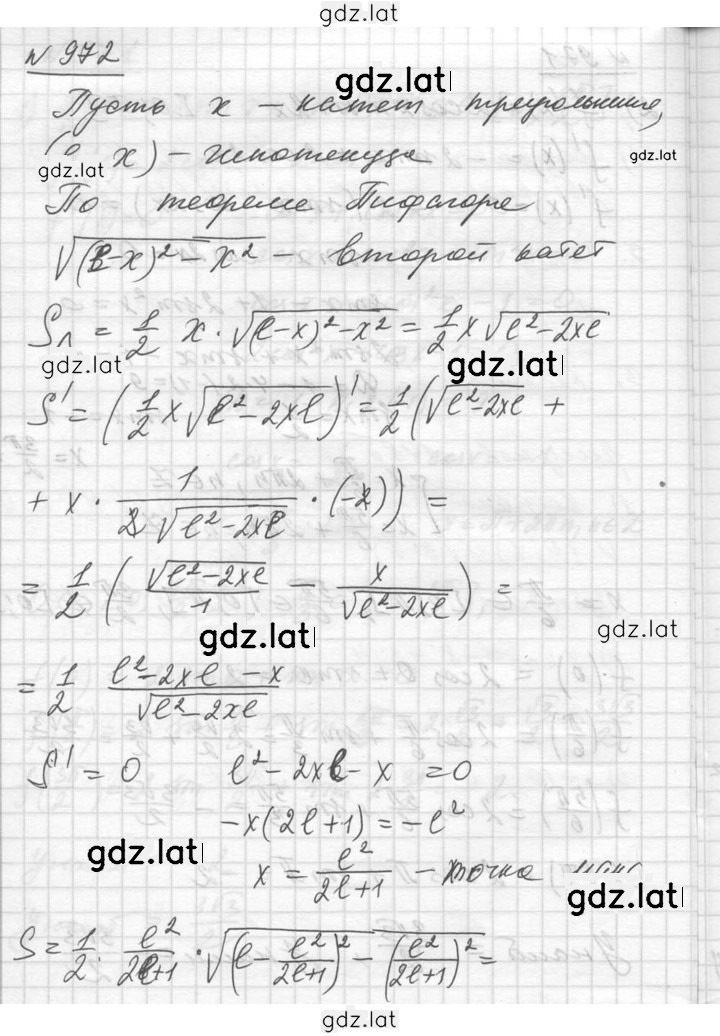 gdz.lat
№ 972
gdz.lat
Пусть x – катет треугольника,
( x) – гипотенуза
gdz.lat
gdz.lat
По теореме Пифагора
√((ℓ-x)² - x²) – второй катет
S△ = 1/2 x · √((ℓ-x)² - x²) = 1/2 x √(ℓ² - 2xℓ)
gdz.lat
gdz.lat
S' = (1/2 x √(ℓ² - 2xℓ))' = 1/2 (√(ℓ² - 2xℓ) +
+ x · 1/(2√(ℓ² - 2xℓ)) · (-2)) =
= 1/2 (√(ℓ² - 2xℓ)/1 - x/√(ℓ² - 2xℓ)) =
gdz.lat
gdz.lat
= 1/2 (ℓ² - 2xℓ - x)/√(ℓ² - 2xℓ)
S' = 0 ℓ² - 2xℓ - x = 0
-x(2ℓ+1) = -ℓ²
gdz.lat
x = ℓ²/(2ℓ+1) – точка
gdz.lat
S = 1/2 · ℓ²/(2ℓ+1) · √((ℓ - ℓ²/(2ℓ+1))² - (ℓ²/(2ℓ+1))²) =
gdz.lat